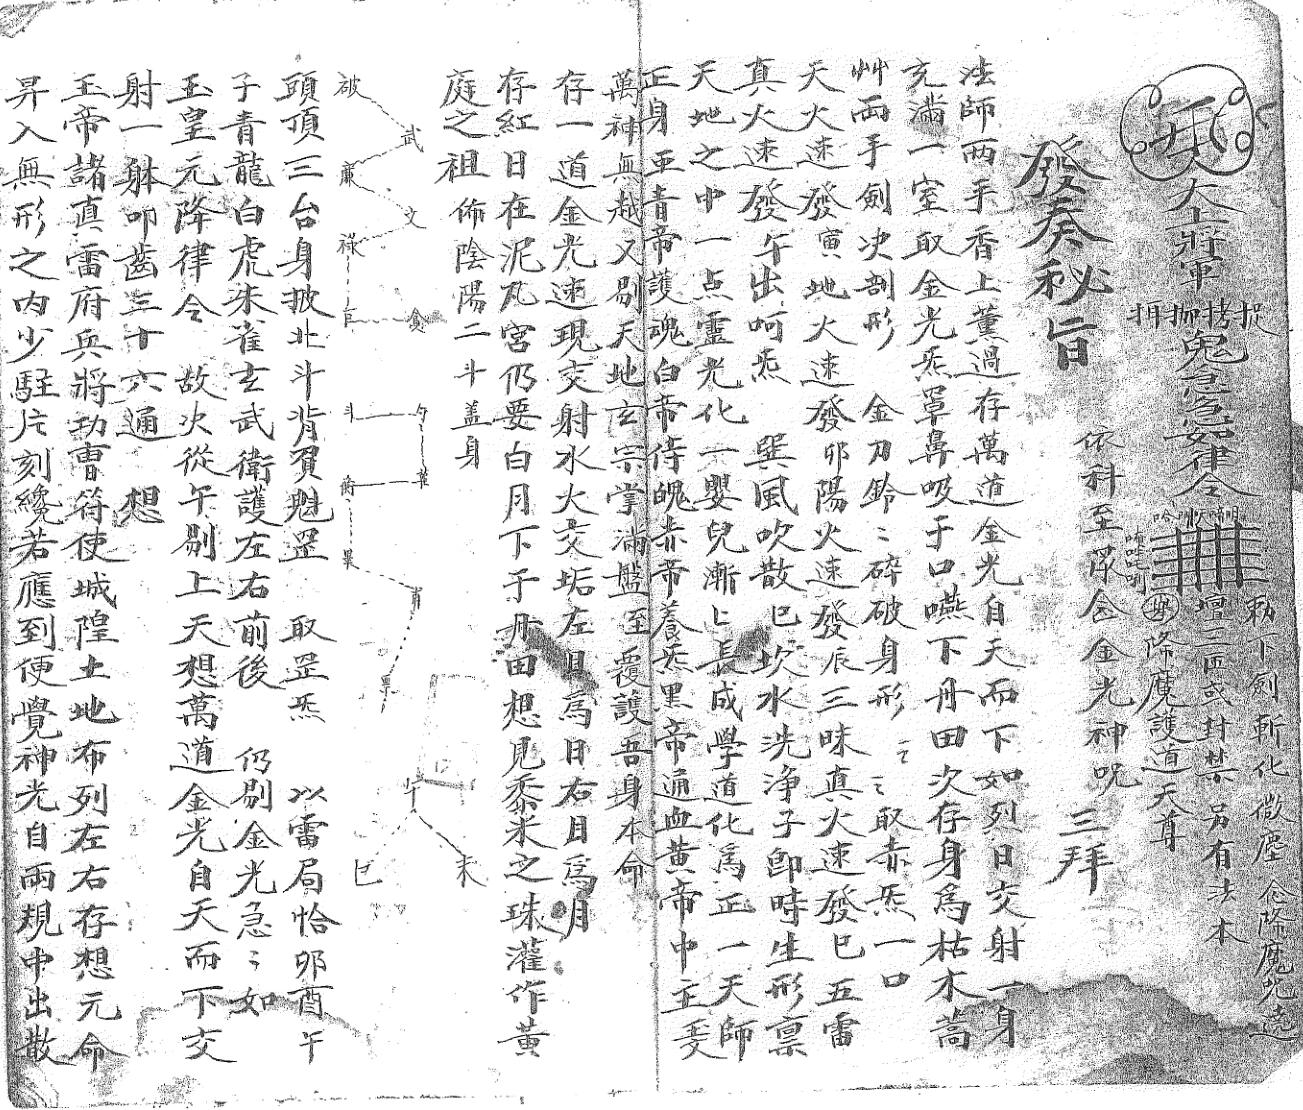 勅下劍斬化微塵 念降魔咒遶
壇三匝或封禁 另有法本
太上將軍 捉拷枷 鬼急急如律令
降魔護道天尊
發奏秘旨 三拜
依科至 念金光神呪
法師两手香上薰過存萬道金光自天而下如列日交射一身
充滿一室取金光炁罩鼻吸于口嚥下丹田次存身爲枯木蒿
艸両手劍决剖形 金刀鈴〻碎破身形〻〻取赤炁一口
天火速發寅地火速發卯陽火速發辰三昧真火速發巳五雷
真火速發午出呵炁 巽風吹散巳坎水洗淨子卽時生形禀
天地之中一点靈光化一嬰兒漸〻長成學道化爲正一天師
正身至青帝護魂白帝侍魄赤帝養炁黑帝通血黄帝中主
萬神無越又剔天地玄宗掌滿盤至覆護吾身本命
存一道金光速現交射水火交垢左目爲日右目爲月
存紅日在泥瓦宮仍要白月下于丹田想見黍米之珠灌作黄
庭之祖佈陰陽二斗蓋身
破 武 廉 文 祿 貪 巨
斗 勺 雚 䰢 畢 甫 票
午 未 巳
頭頂三台身披北斗背負魁罡 取罡炁 以雷局恰卯酉午
子青龍白虎朱雀玄武衛護左右前後 仍剔金光急〻如
玉皇元降律令 故次從午剔上天想萬道金光自天而下交
射一躰叩齒三十六通 想
玉帝諸真雷府兵將功曹符使城隍土地布列左右存想元命
昇入無形之内少駐片刻纔若應到便覺神光自兩規中出散